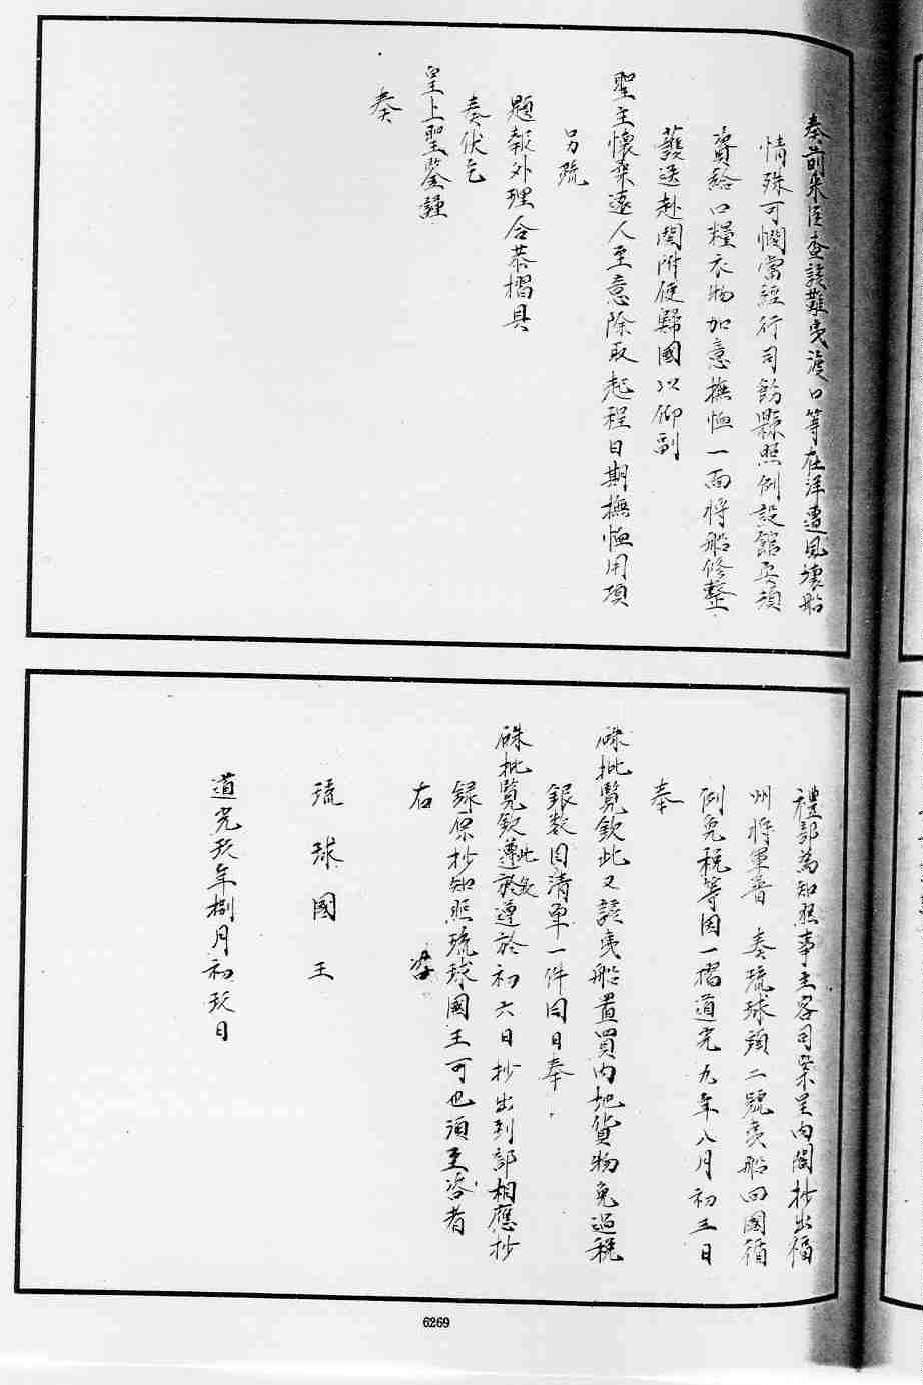 奏前來臣查該難夷渡口等在洋遭風壞船
情殊可憫當經行司飭縣照例設館安頓
賞給口糧衣物加意撫恤一面將船修整
護送赴閩附便歸國以仰副
聖主懷柔遠人至意除取起程日期撫恤用項
另疏
題報外理合恭摺具
奏伏乞
皇上聖鑒謹
奏
禮部為知照事主客司案呈內閣抄出福
州將軍薩 奏琉球頭二號夷船回國循
例免稅等因一摺道光九年八月初三日
奉
硃批覽欽此又該夷船置買內地貨物免過稅
銀数目清單一件同日奉
硃批覽欽此欽遵於遵於初六日抄出到部相應抄
錄原抄知照琉球國王可也須至咨者
右 咨
琉球國王
道光玖年捌月初玖日
6269